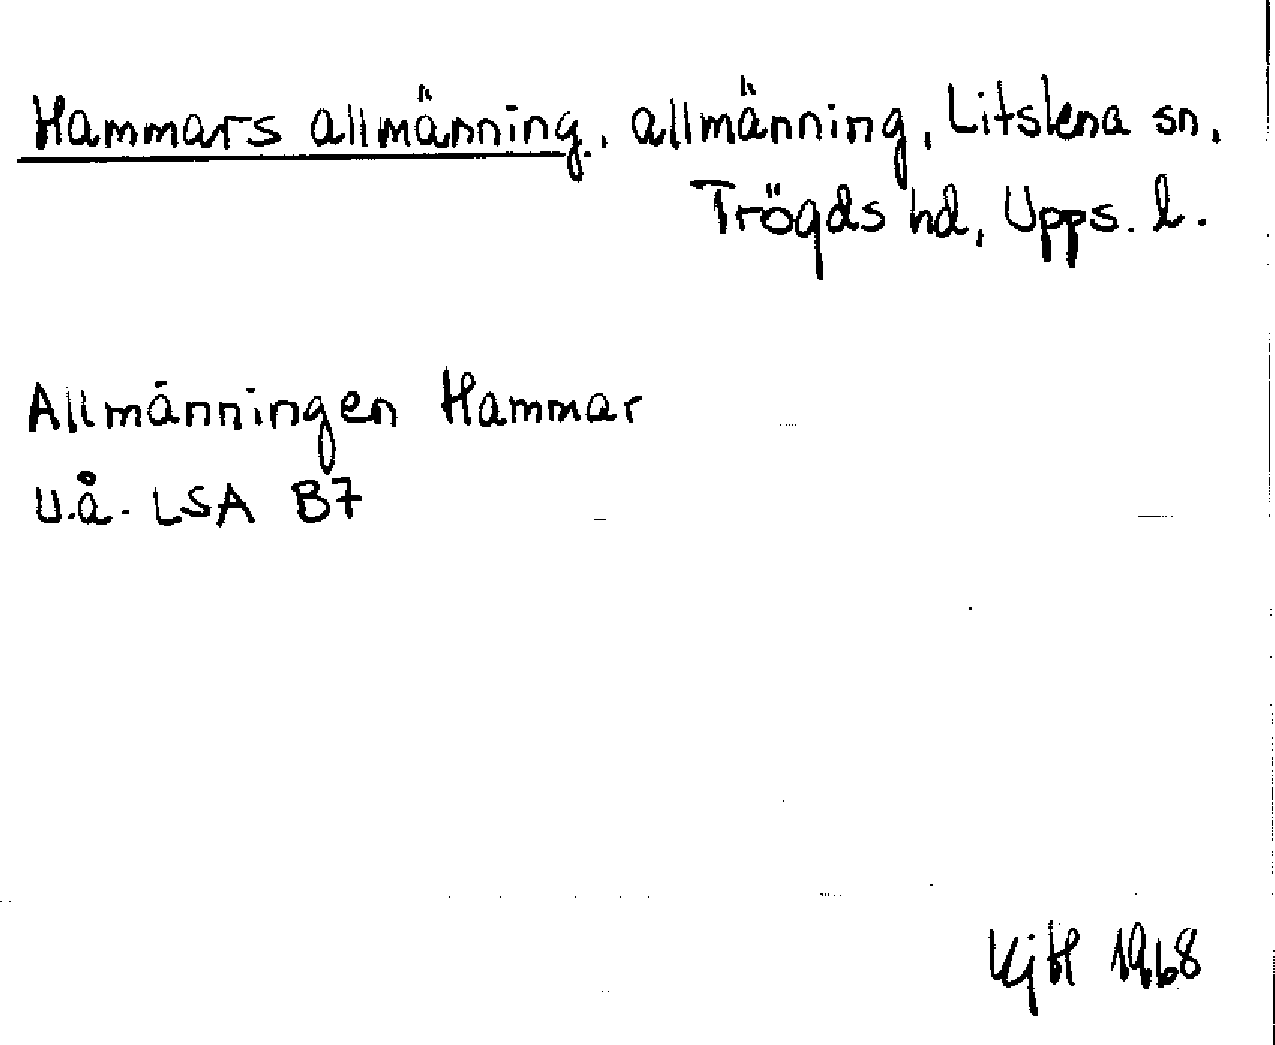 Hammars allmänning, allmänning, Litslena sn,
Trögds hd, Upps. l.
Allmänningen Hammar
U.å. LSA B7
KjH 1968